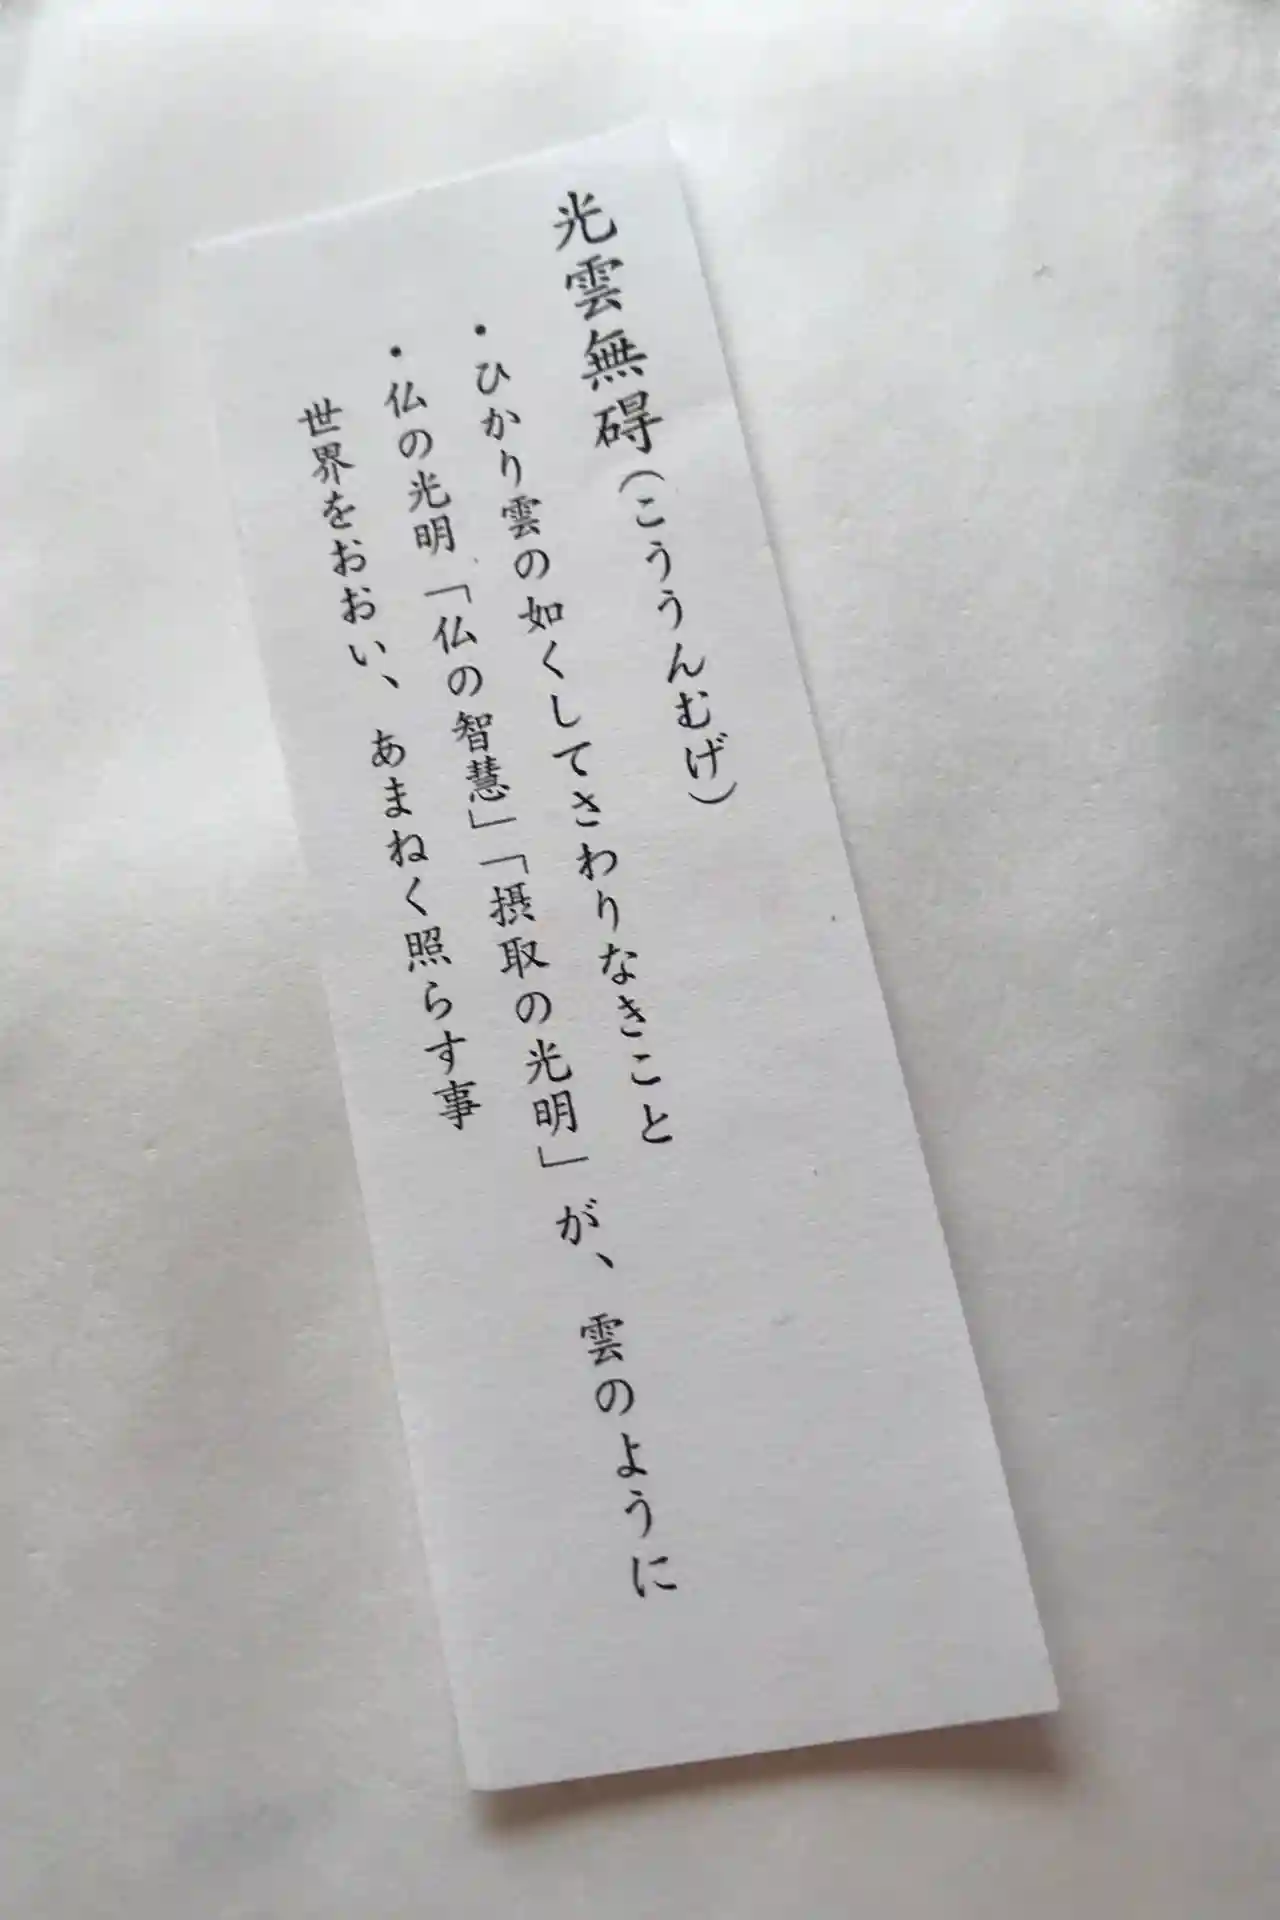 光雲無碍（こううんむげ）
・ひかり雲の如くしてさわりなきこと
・仏の光明「仏の智慧」「摂取の光明」が、雲のように
世界をおおい、あまねく照らす事